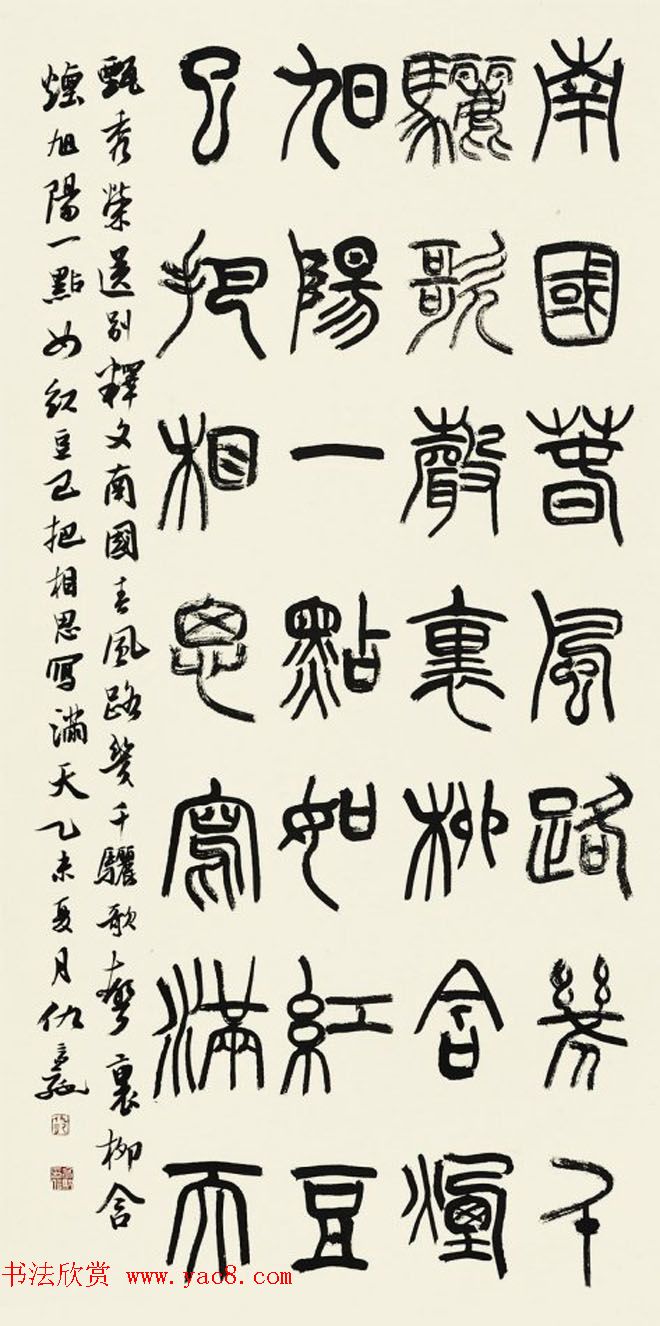 南國春風路幾千
驪歌聲裏柳含煙
旭陽一點如紅豆
已把相思寫滿天
甄秀榮送别釋文南國春風路幾千驪歌聲裏柳含
煙旭陽一點如紅豆已把相思寫滿天乙未夏月仇
书法欣赏 www.yac8.com